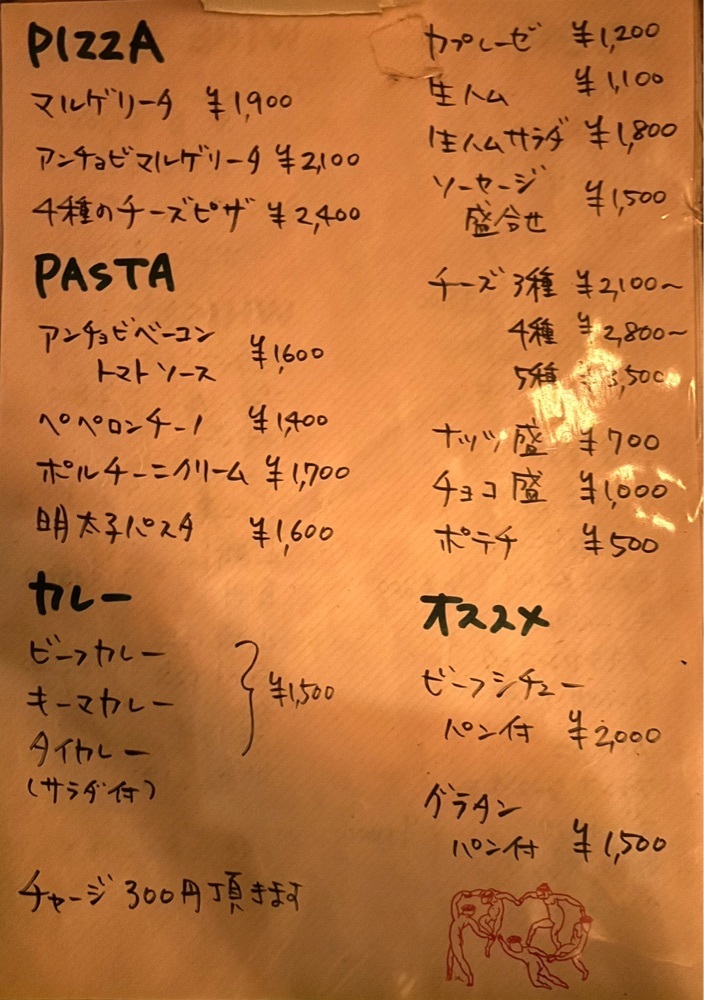 PIZZA
マルゲリータ ¥1,900
アンチョビマルゲリータ ¥2,100
4種のチーズピザ ¥2,400
PASTA
アンチョビベーコン
トマトソース ¥1,600
ペペロンチーノ ¥1,400
ポルチーニクリーム ¥1,700
明太子パスタ ¥1,600
カレー
ビーフカレー
キーマカレー ¥1,500
タイカレー
(サラダ付)
チャージ 300円頂きます
カプレーゼ ¥1,200
生ハム ¥1,100
生ハムサラダ ¥1,800
ソーセージ
盛合せ ¥1,500
チーズ3種 ¥2,100〜
4種 ¥2,800〜
5種 ¥3,500
ナッツ盛 ¥700
チョコ盛 ¥1,000
ポテチ ¥500
オススメ
ビーフシチュー
パン付 ¥2,000
グラタン
パン付 ¥1,500